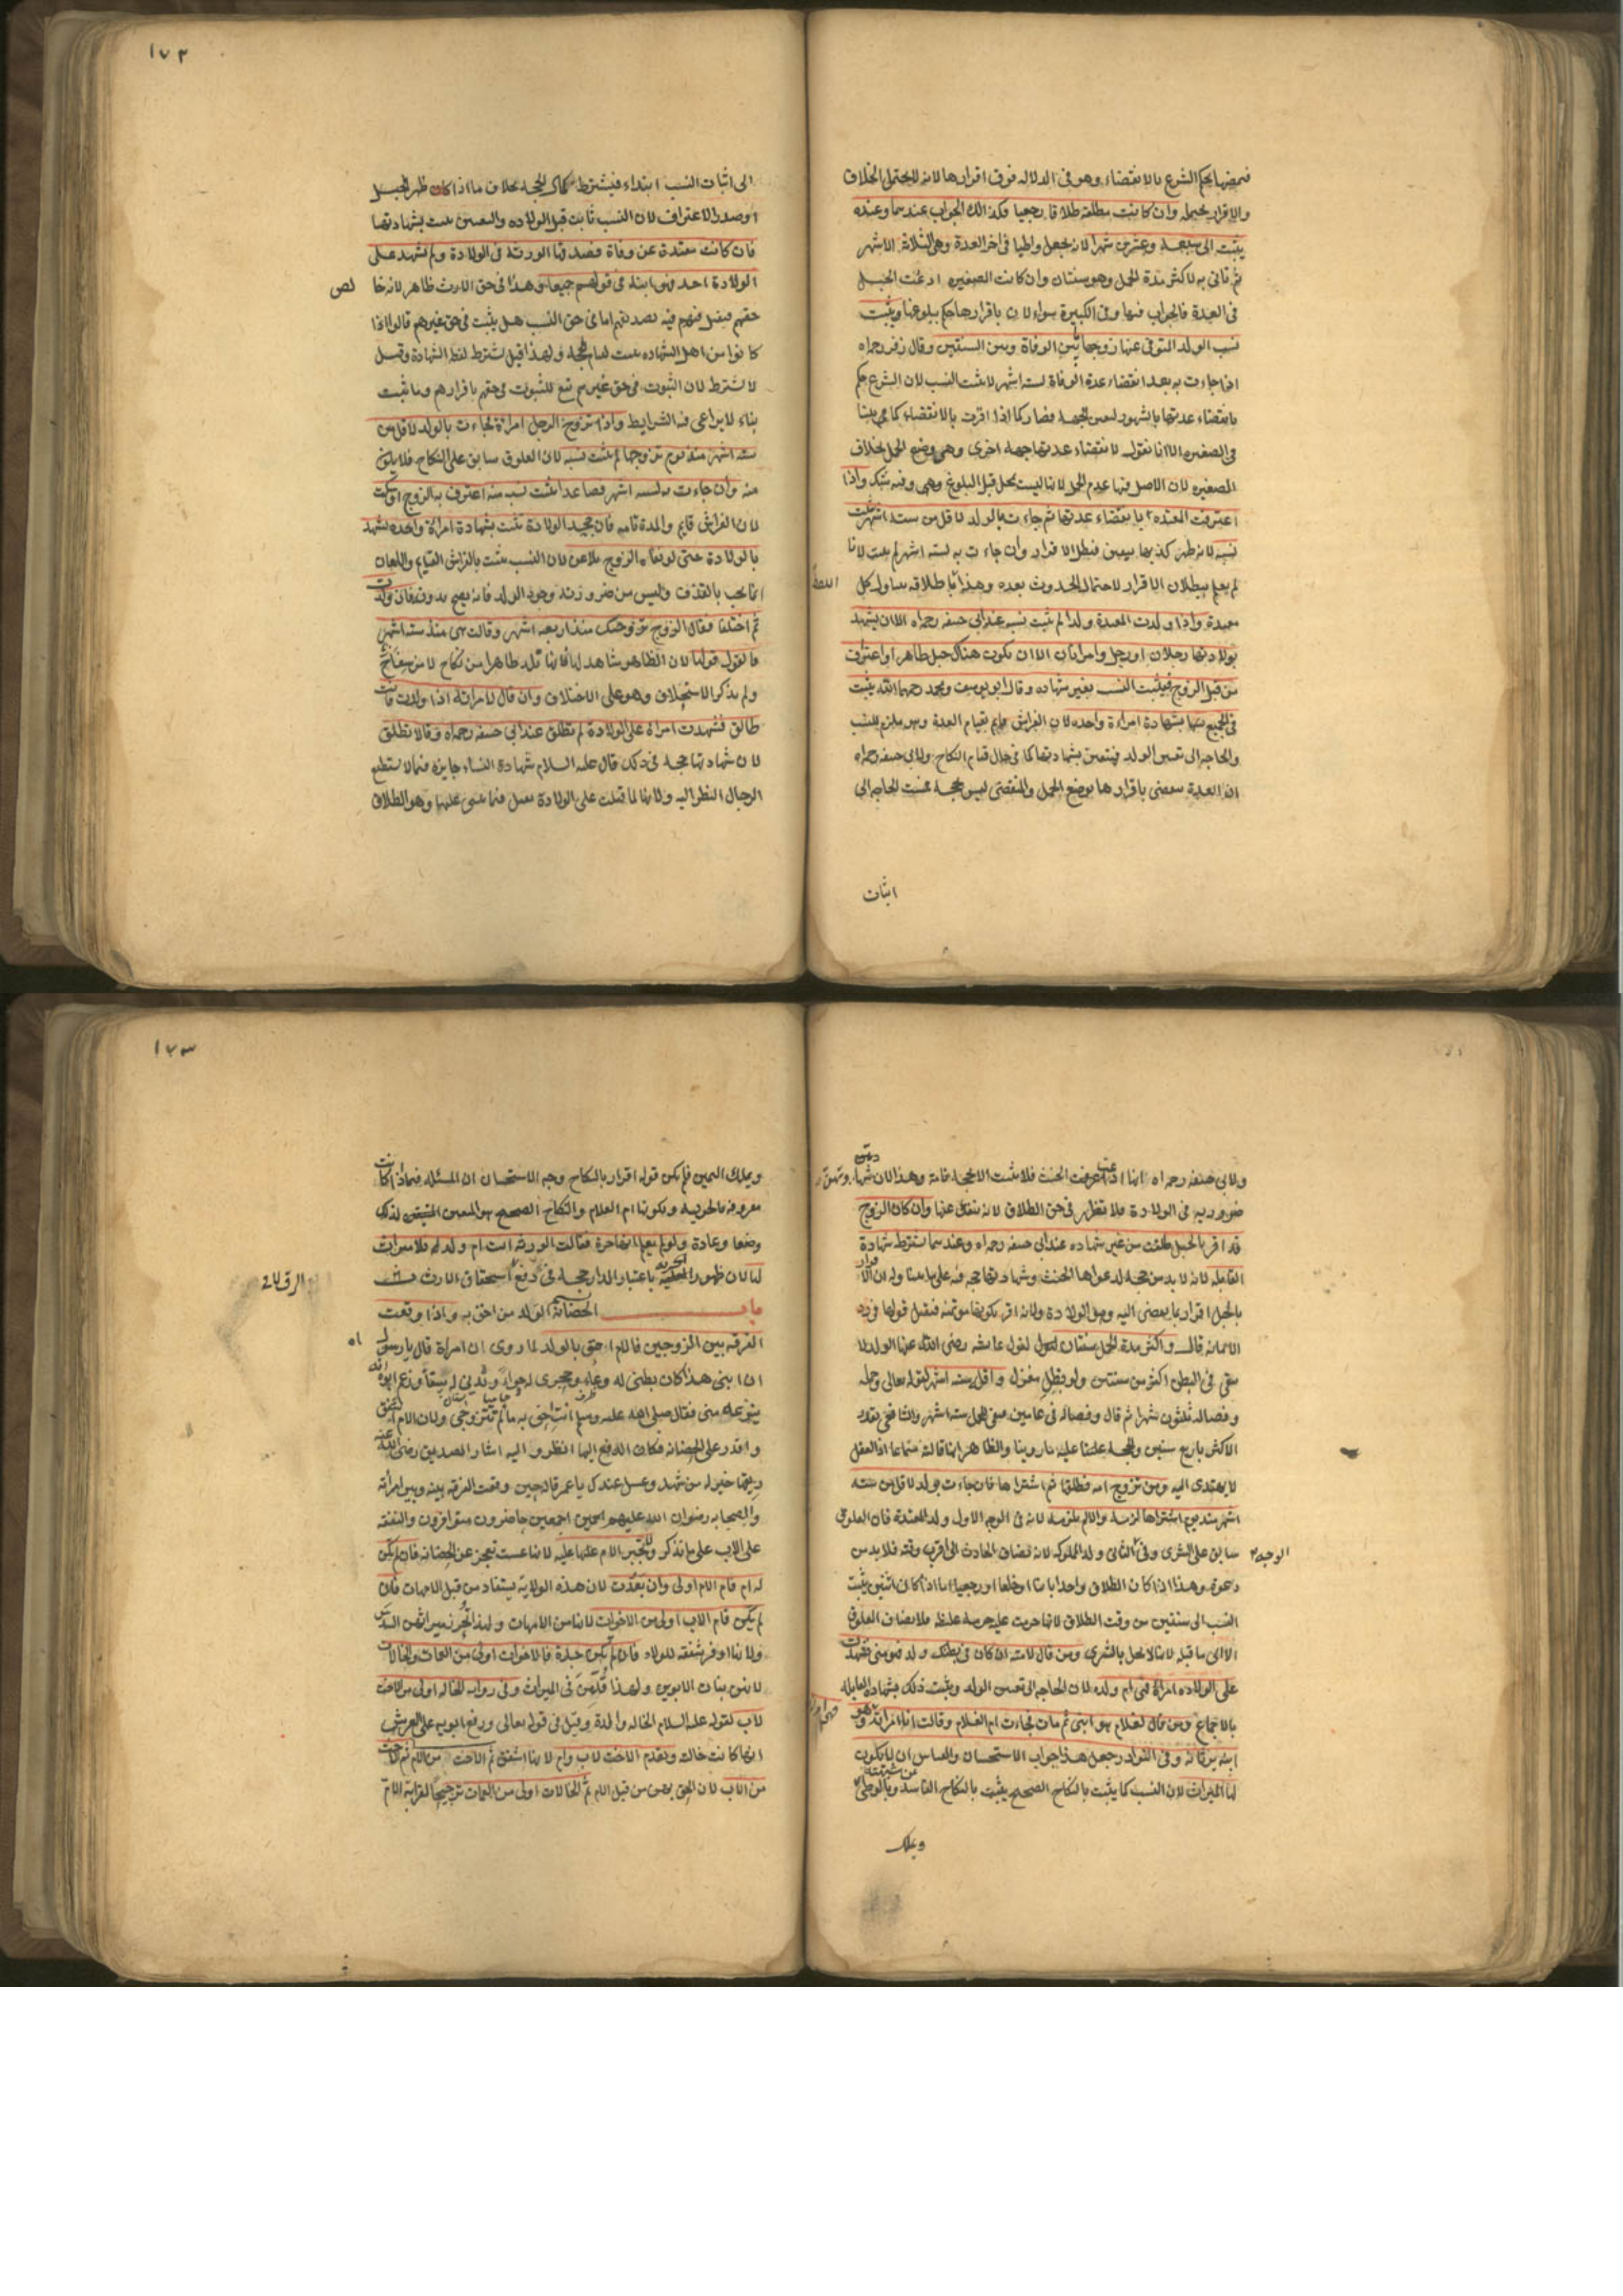 ١٧٢
فبمضيها يحكم الشرع بالانقضاء وهو في الدلالة فوق اقرارها لانه لا يحتمل الخلاف
والاقرار يحتمله وان كانت مطلقة طلاقا رجعيا فكذالك الجواب عندهما وعنده
يثبت الى سبعة وعشرين شهرا لانه يجعل واطيا في اخر العدة وهي الثلاثة الاشهر
ثم تاتي به لاكثر مدة الحمل وهو سنتان وان كانت الصغيره ادعت الحبل
في العدة فالجواب فيها وفي الكبيرة سواء لان باقرارها حكم ببلوغها ويثبت
نسب الولد المتوفى عنها زوجها بين الوفاة وبين السنتين وقال زفر رحمه الله
اذا جاءت به بعد انقضاء عدة الوفاة لستة اشهر لا يثبت النسب لان الشرع حكم
بانقضاء عدتها بالشهور لتعين الجهة فصار كما اذا اقرت بالانقضاء كما بينا
في الصغيره الا انا نقول لانقضاء عدتها جهة اخرى وهي وضع الحمل بخلاف
الصغيره لان الاصل فيها عدم الحمل لانها ليست بمحل قبل البلوغ وهي وفيه شك واذا
اعترفت المعتدة بانقضاء عدتها ثم جاءت بالولد لاقل من ستة اشهر يثبت
نسبه لانه ظهر كذبها بيقين فبطل الاقرار وان جاءت به لستة اشهر لم يثبت لانا
لم نعلم ببطلان الاقرار لاحتمال الحدوث بعده وهذا باطلاقه يتناول كل
اللفظ
معتدة واذا ولدت المعتدة ولدا لم يثبت نسبه عند ابي حنيفه رحمه الله الا ان يشهد
بولادتها رجلان او رجل وامراتان الا ان يكون هناك حبل ظاهر او اعتراف
من قبل الزوج فيثبت النسب بغير شهاده وقال ابو يوسف ومحمد رحمهما الله يثبت
في الجميع بشهادة امراة واحده لان الفراش قايم بقيام العدة وهو ملزم للنسب
والحاجه الى تعيين الولد فيتعين بشهادتها كما في حال قيام النكاح ولابي حنيفه رحمه الله
ان العدة تنقضي باقرارها بوضع الحمل والمنقضي ليس بحجة فمست الحاجه الى
اثبات
الى اثبات النسب ابتداء فيشترط كمال الحجة بخلاف ما اذا كان ظهر الحبل
او صدر الاعتراف لان النسب ثابت قبل الولاده والتعين يثبت بشهادتها
فان كانت معتدة عن وفاة فصدقها الورثة في الولادة ولم تشهد على
الولادة احد فهو ابنه في قولهم جميعا وهذا في حق الارث ظاهر لانه خا
لص
حقهم فيقبل فيه تصديقهم اما في حق النسب هل يثبت في حق غيرهم قالوا اذا
كانوا من اهل الشهاده يثبت لقيام الحجة ولهذا قيل تشترط لفظ الشهادة وقيل
لا تشترط لان الثبوت في حق غيرهم تبع للثبوت في حقهم باقرارهم وما يثبت
بناء لا يراعى فيه الشرايط واذا تزوج الرجل امراة فجاءت بالولد لاقل من
ستة اشهر منذ يوم تزوجها لم يثبت نسبه لان العلوق سابق على النكاح فلا يكون
منه وان جاءت به لستة اشهر فصاعدا يثبت نسبه منه اعترف به الزوج او سكت
لان الفراش قايم والمدة تامه فان جحد الولادة تثبت بشهادة امراة واحده تشهد
بالولادة حتى لو نفاه الزوج يلاعن لان النسب يثبت بالفراش القايم واللعان
انما يجب بالقذف وليس من ضرورته وجود الولد فانه يصح بدونه فان ولدت
ثم اختلفا فقال الزوج تزوجتك منذ اربعه اشهر وقالت هي منذ ستة اشهر
فالقول قولها لان الظاهر شاهد لها فانها تلد ظاهرا من نكاح لا من سفاح
ولم يذكر الاستحلاف وهو على الاختلاف وان قال لامراته اذا ولدت فانت
طالق فشهدت امراة على الولادة لم تطلق عند ابي حنيفه رحمه الله وقالا تطلق
لان شهادتها حجه في ذلك قال عليه السلام شهادة النساء جايزه فيما لا يستطيع
الرجال النظر اليه ولانها لما قبلت على الولادة تقبل فيما يبتنى عليها وهو الطلاق
١٧٣
ولابي حنيفه رحمه الله انها ادعت الحنث فلا يثبت الا بحجة تامة وهذا لان شهادتهن
ضروريه في الولادة فلا تظهر في حق الطلاق لانه ينفك عنها وان كان الزوج
قد اقر بالحبل طلقت من غير شهاده عند ابي حنيفه رحمه الله وعندهما تشترط شهادة
القابلة لانه لا بد من حجة لدعواها الحنث وشهادتها حجه فيه على ما بينا وله ان الاقرار
بالحبل اقرار بما يفضي اليه وهو الولادة ولانه اقر بكونها مؤتمنه فيقبل قولها في رد
الامانه قال واكثر مدة الحمل سنتان لقول عايشه رضي الله عنها الولد لا
يبقى في البطن اكثر من سنتين ولو بظل مغزل واقله ستة اشهر لقوله تعالى وحمله
وفصاله ثلثون شهرا ثم قال وفصاله في عامين فبقي للحمل ستة اشهر والشافعي يقدر
الاكثر باربع سنين والحجة عليه ما روينا والظاهر انها قالته سماعا اذ العقل
لا يهتدي اليه ومن تزوج امة فطلقها ثم اشتراها فان جاءت بولد لاقل من ستة
اشهر منذ يوم اشتراها لزمه والا لم يلزمه لانه في الوجه الاول ولد المعتدة فان العلوق
سابق على الشرى وفي الثاني ولد المملوكه لانه يضاف الحادث الى اقرب وقته فلا بد من
الوجه
دعوة وهذا اذا كان الطلاق واحدا باينا او خلعا او رجعيا اما اذا كان اثنتين يثبت
النسب الى سنتين من وقت الطلاق لانها حرمت عليه حرمة غليظه فلا يضاف العلوق
الا الى ما قبله لانها لا تحل بالشرى ومن قال لامته ان كان في بطنك ولد فهو مني فشهدت
على الولاده امراة فهي ام ولده لان الحاجه الى تعيين الولد ويثبت ذلك بشهادة القابلة
بالاجماع ومن قال لغلام هو ابني ثم مات فجاءت ام الغلام وقالت انا امراته وهو
ابنه يرثانه وفي النوادر جعل هذا جواب الاستحسان والقياس ان لا يكون
لها الميراث لان النسب كما يثبت بالنكاح الصحيح يثبت بالنكاح الفاسد وبالوطئ
عن شبهة
وبملك
وبملك اليمين فلم يكن قوله اقرارا بالنكاح وجه الاستحسان ان المسئله فيما اذا كانت
معروفه بالحرية وبكونها ام الغلام والنكاح الصحيح هو المتعين لذلك
وضعا وعادة ولو لم يعلم انها حرة فقالت الورثة انت ام ولد له فلا ميراث
لها لان ظهور الحرية باعتبار الدار حجة في دفع الرق لا في استحقاق الارث
باب الحضانة الولد من احق به واذا وقعت
الفرقه بين الزوجين فالام احق بالولد لما روي ان امراة قال يا رسول الله
ان ابني هذا كان بطني له وعاء وحجري له حواء وثديي له سقاء وزعم ابوه انه
ينزعه مني فقال صلى الله عليه وسلم انت احق به ما لم تتزوجي ولان الام اشفق
واقدر على الحضانه فكان الدفع اليها انظر واليه اشار الصديق رضي الله عنه
ريقها خير له من شهد وعسل عندك يا عمر قاله حين وقعت الفرقة بينه وبين امراته
والصحابه رضوان الله عليهم اجمعين حاضرون متوافرون والنفقة
على الاب على ما نذكر ولا تجبر الام عليه لانها عست تعجز عن الحضانه فان لم يكن
له ام فام الام اولى وان بعدت لان هذه الولاية يستفاد من قبل الامهات فان
لم يكن فام الاب اولى من الاخوات لانها من الامهات ولهذا تحرز ميراثهن السدس
ولانها اوفر شفقه للولاد فان لم يكن جدة فالاخوات اولى من العمات والخالات
لانهن بنات الابوين ولهذا قدمن في الميراث وفي رواية الخاله اولى من الاخت
لاب لقوله عليه السلام الخاله والدة وقيل في قوله تعالى ورفع ابويه على العرش
انها كانت خالته وتقدم الاخت لاب وام لانها اشفق ثم الاخت من الام ثم الاخت
من الاب لان الحق لهن من قبل الام ثم الخالات اولى من العمات ترجيحا لقرابة الام